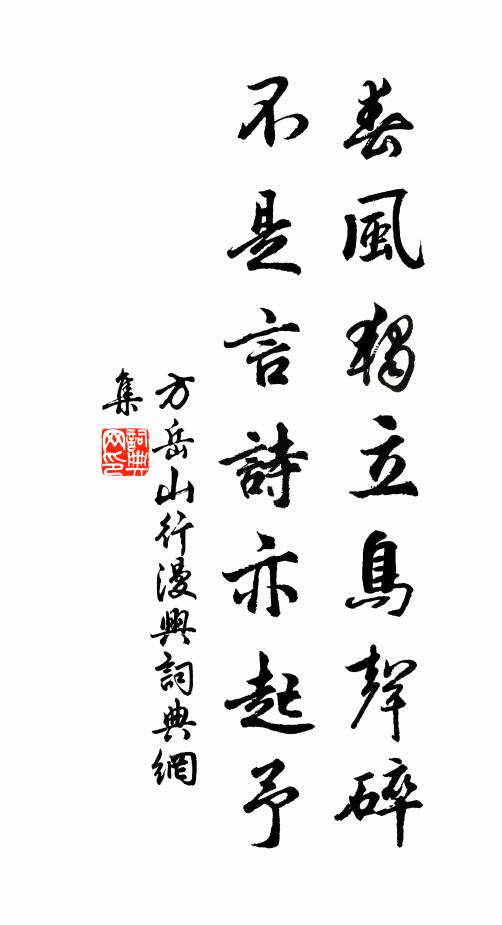 春風獨立鳥聲碎
不是言詩亦起予
方岳山行漫興詞典網
集
詞典
网印